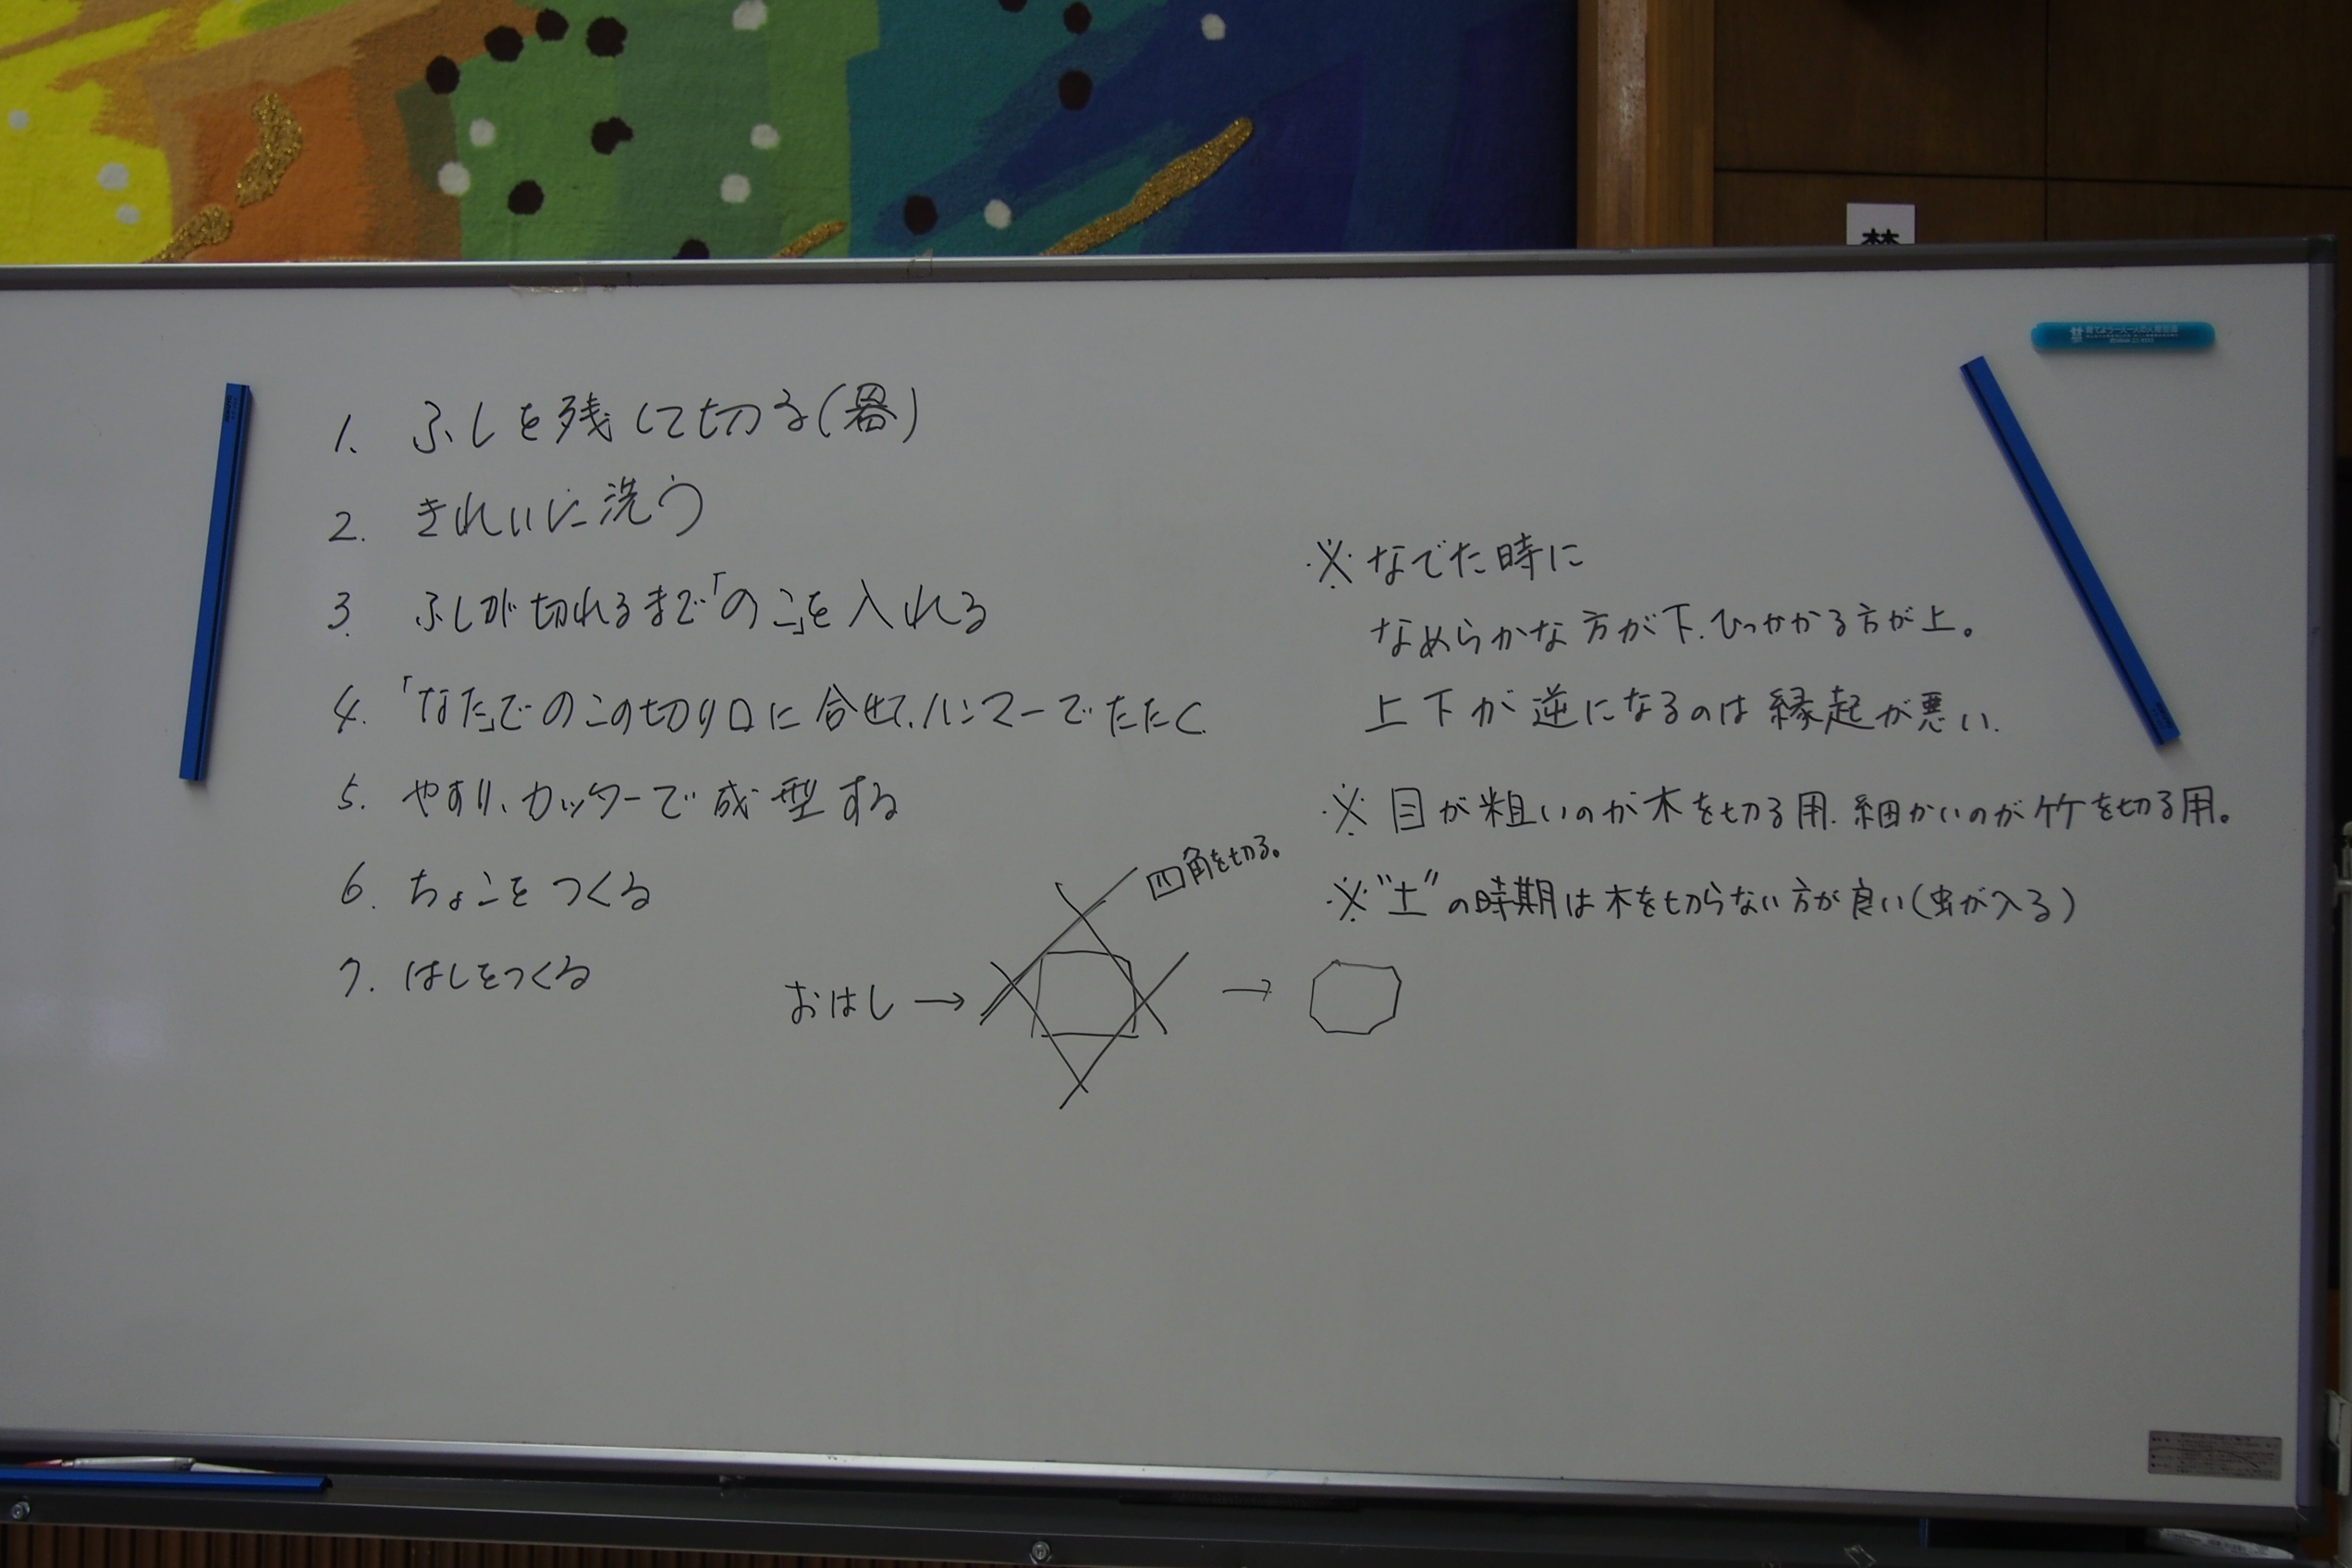 1. ふしを残して切る(器)
2. きれいに洗う
3. ふしが切れるまで「のこ」を入れる
4. 「なた」でのこの切り口に合せて、ハンマーでたたく
5. やすり、カッターで成型する
6. ちょこをつくる
7. はしをつくる
おはし →
四角を切る。
→
※なでた時に
なめらかな方が下、ひっかかる方が上。
上下が逆になるのは縁起が悪い。
※目が粗いのが木を切る用、細かいのが竹を切る用。
※"土"の時期は木を切らない方が良い(虫が入る)